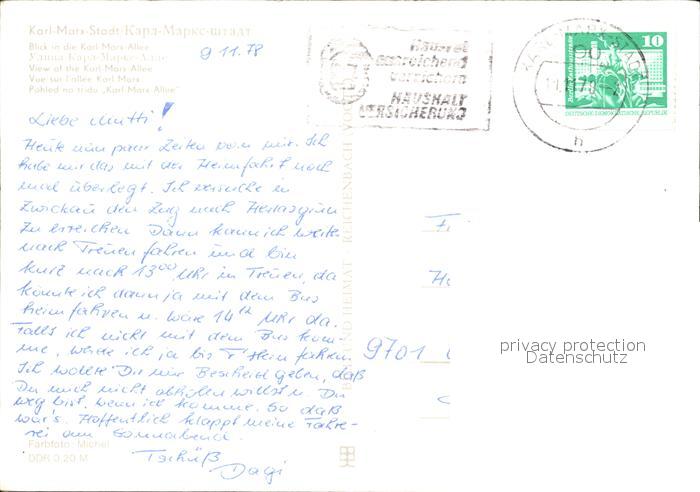 Karl-Marx-Stadt/Карл-Маркс-штадт
Blick in die Karl-Marx-Allee
Улица Карл-Маркс-Алле
View of the Karl Marx Allee
Vue sur l'allée Karl Marx
Pohled na třídu „Karl-Marx-Allee"
9 11. 78
Hausrat
ausreichend
versichern
HAUSHALT
VERSICHERUNG
KARL-MARX-STADT
90
h
10
Berlin, Rathausstraße
DEUTSCHE DEMOKRATISCHE REPUBLIK
Liebe Mutti!
Heute nun paar Zeilen von mir. Ich
habe mir das mit der Heimfahrt noch
mal überlegt. Ich versuche in
Zwickau den Zug nach Herlasgrün
zu erreichen. Dann kann ich weiter
nach Treuen fahren und bin
kurz nach 13⁰⁰ Uhr in Treuen, da
könnte ich dann ja mit dem Bus
heimfahren u. wäre 14 Uhr da.
Falls ich nicht mit dem Bus kom-
me, werde ich ja bis fahren.
Ich wollte Dir nur Bescheid geben, daß
Du mich nicht abholen willst u. Du
weg bist, wenn ich komme. So daß
war's. Hoffentlich klappt meine Fahre-
rei am Sonnabend.
Tschüß
Dagi
9701
BILD UND HEIMAT REICHENBACH
Farbfoto: Michel
DDR 0,20 M
privacy protection
Datenschutz